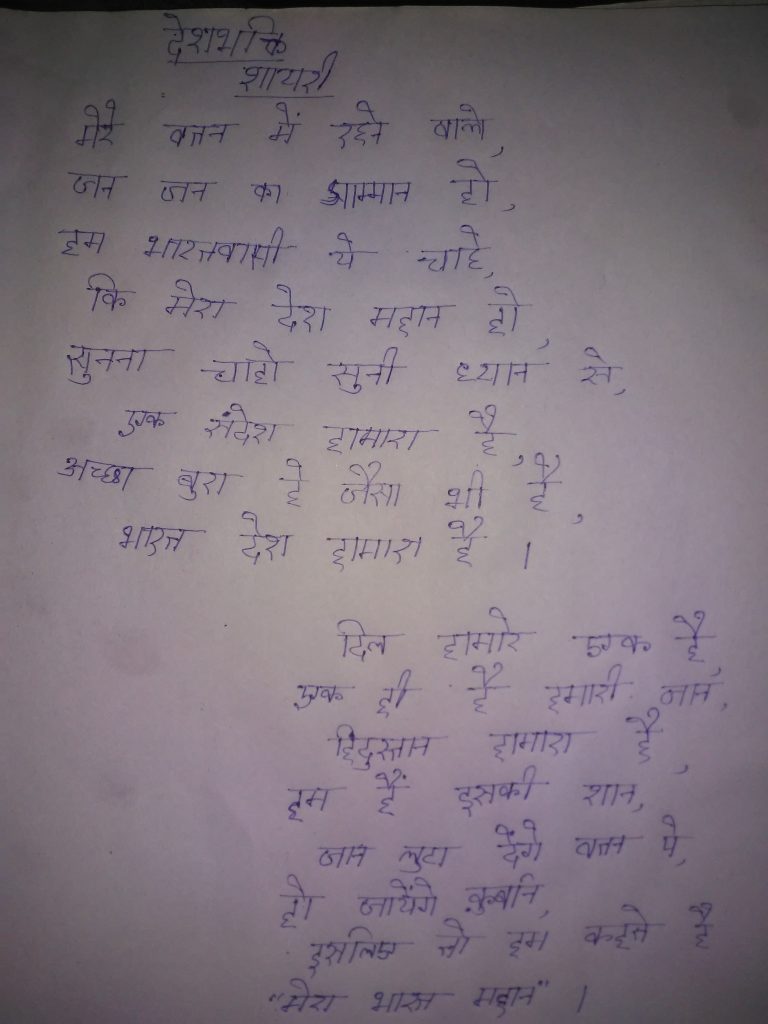 देशभक्ति
शायरी
मेरे वतन में रहने वाले,
जन जन का सम्मान हो,
हम भारतवासी ये चाहे,
कि मेरा देश महान हो,
सुनना चाहो सुनी ध्यान से,
एक संदेश हामारा है,
अच्छा बुरा हे जैसा भी है,
भारत देश हामारा है ।
दिल हामारे एक है,
एक ही है हमारी जान,
हिंदुस्तान हामारा है,
हम हैं इसकी शान,
जान लुटा देंगे वतन पे,
हो जायेंगे क़ुर्बान,
इसलिए तो हम कहते है
"मेरा भारत महान" ।